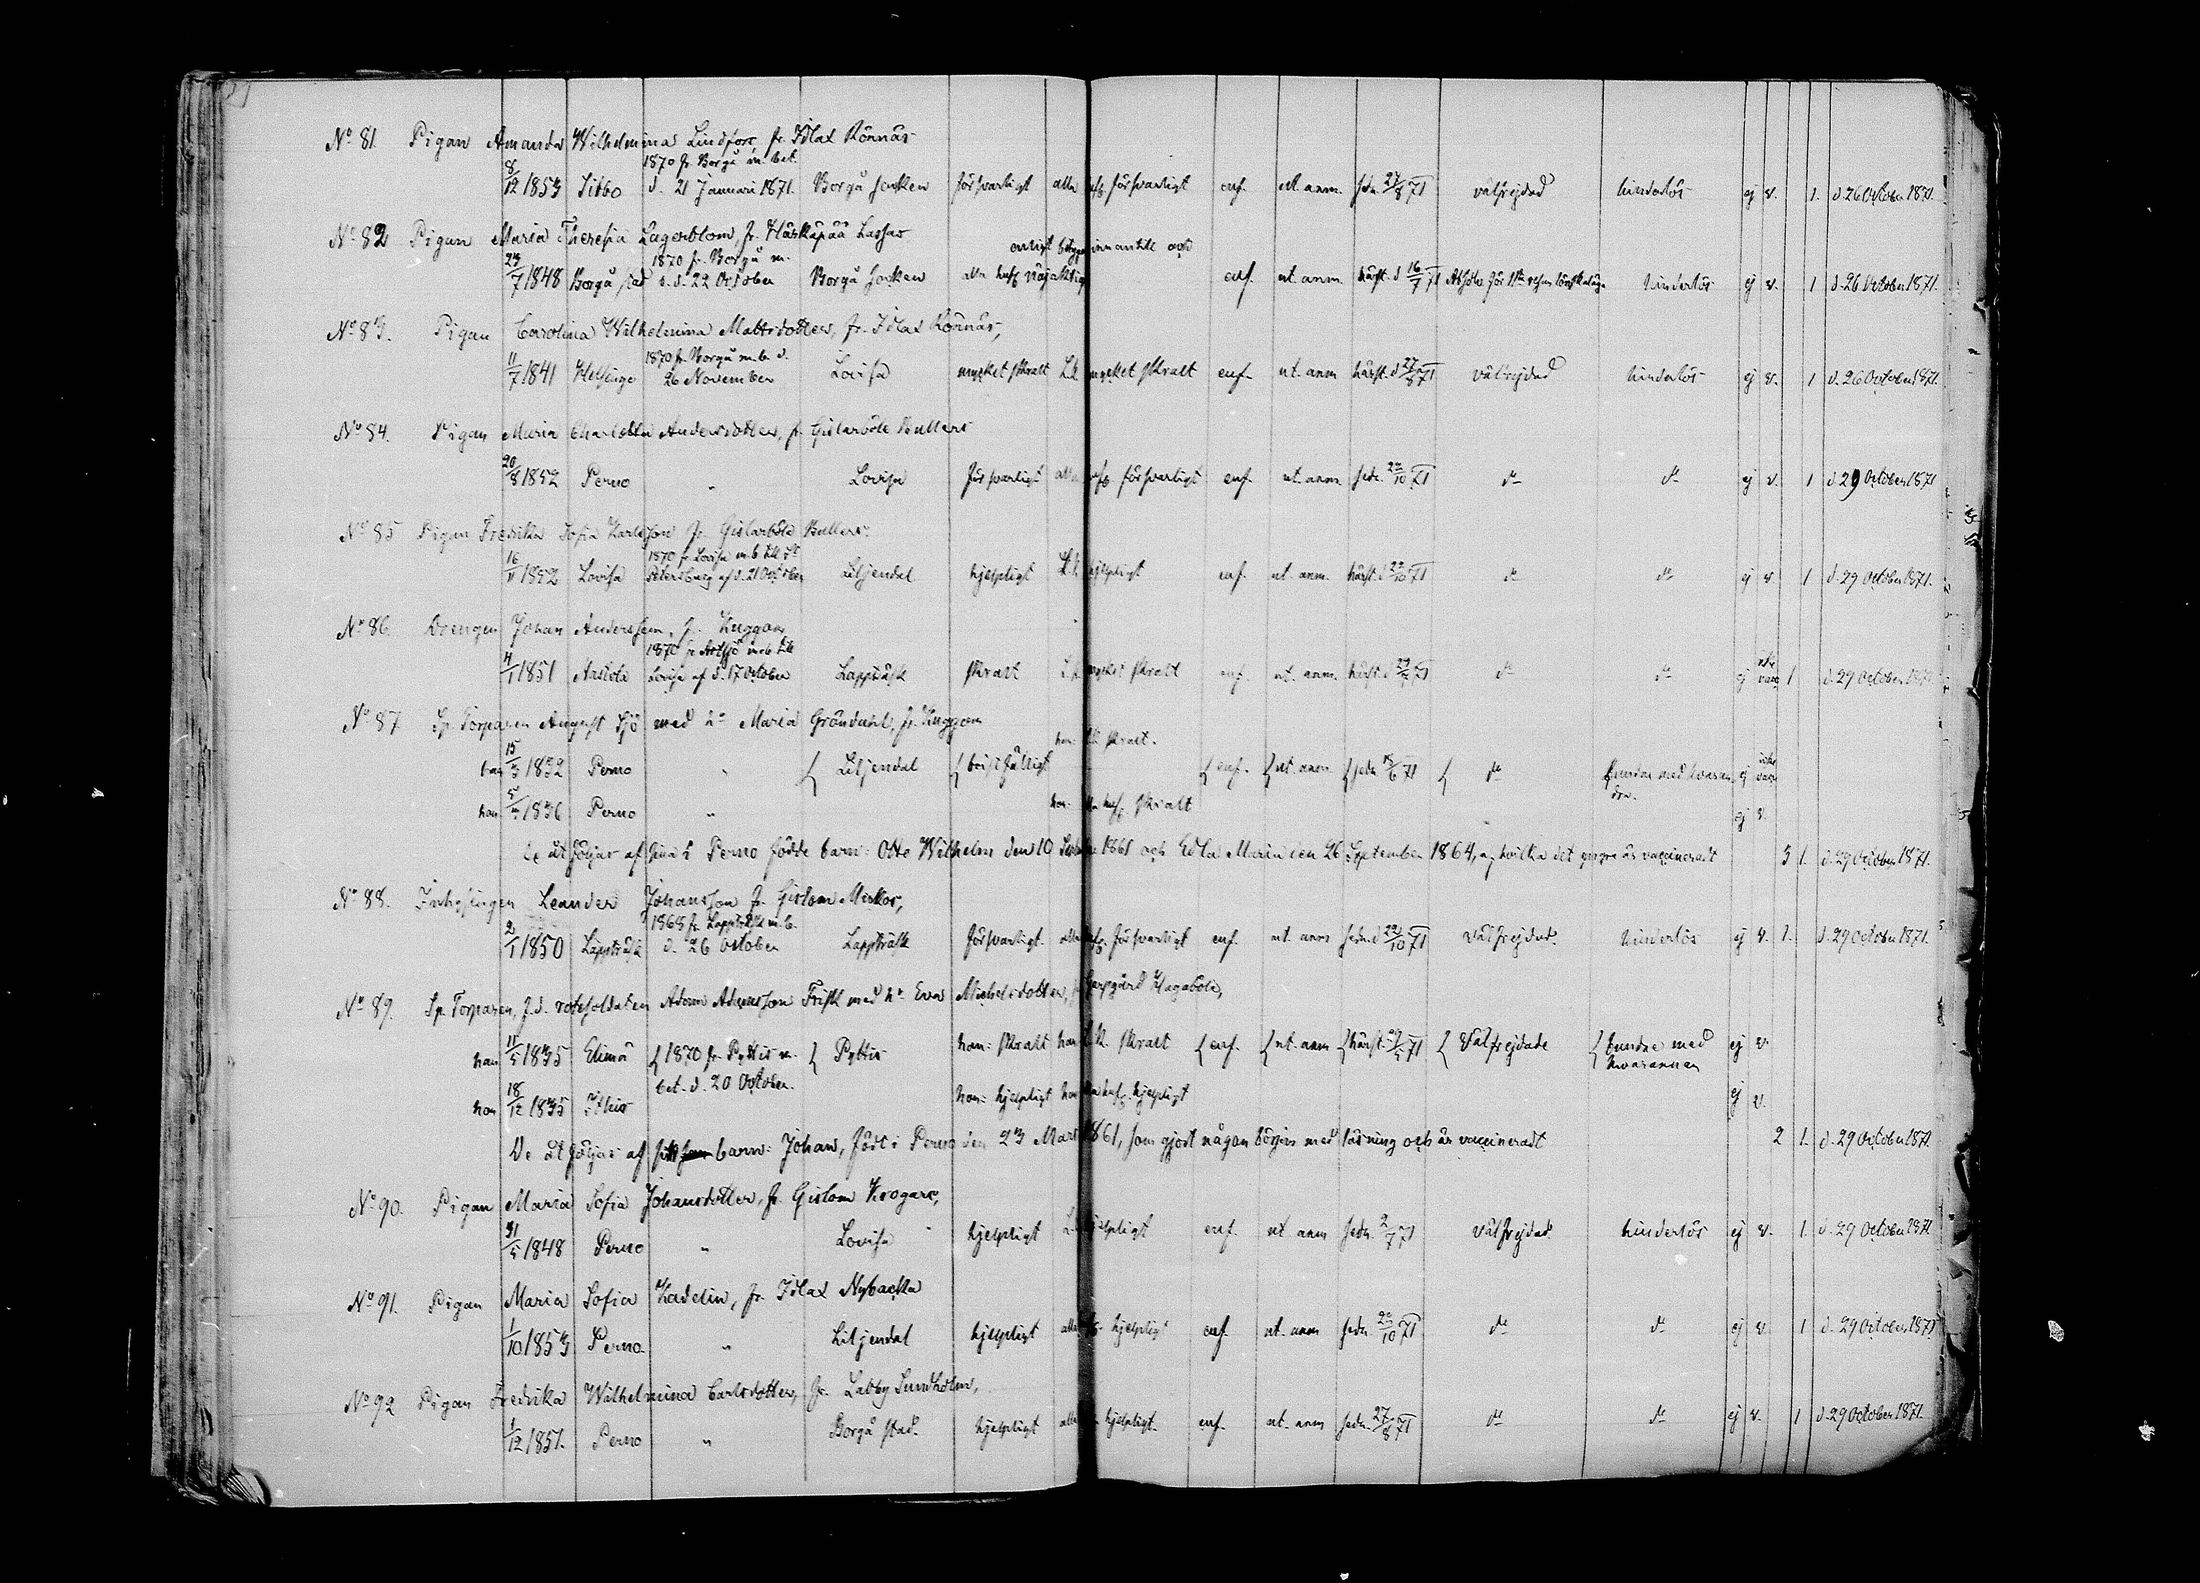 No 81. Pigan Amanda Wilhelmina Lindfors, fr. Idlax Rönnäs
1870 fr. Borgå m. bet.
8/12 1853 Sibbo d. 21 Januari 1871. Borgå socken försvarligt alla försvarligt enf. nt. anm. sedn. 27/8 71 välfrejdad hinderlös ej v. 1. d. 26 October 1871.
No 82 Pigan Maria Theresia Lagerblom, fr. Härkäpää Lassas
1870 fr. Borgå m.
23/7 1848 Borgå stad b. d. 22 October Borgå socken enf. nt. anm. härst. d 16/7 71 hinderlös ej v. 1 d. 26 October 1871.
No 83. Pigan Carolina Wilhelmina Mattsdotter, fr. Idlax Rönnäs,
1870 fr. Borgå m. b. d.
11/7 1841 Helsinge 26 November Lovisa mycket skralt mycket skralt enf. nt. anm härst. d 27/8 71 välfrejdad hinderlös ej v. 1 d. 26 October 1871.
No 84. Pigan Maria Charlotta Andersdotter, fr Gislarböle Bullers
20/8 1852 Perno " Lovisa försvarligt försvarligt enf. nt. anm. sedn. 22/10 71 do do ej v. 1 d. 29 October 1871
No 85 Pigan Fredrika Sofia Karlsson fr. Gislarböle Bullers.
1870 fr. Lovisa m. b till St
16/11 1852 Lovisa Petersburg af d. 21 October Liljendal hjelpligt hjelpligt enf. nt. anm. härst. d 22/10 71 do do ej v. 1 d. 29 October 1871.
No 86. Drengen Johan Andersson, fr. Kuggom
1870 fr Artsjö m. b till
4/1 1851 Lovisa af d. 17 October Lappträsk skralt mycket skralt enf. nt. anm. härst. d do do ej icke vacc. 1 d. 29 October 1871
No 87 Sp. Torparen August Sjö med h. Maria Gröndahl, fr. Kuggom
han: skralt.
han 15/3 1832 Perno " Liljendal bristfälligt enf. nt. anm sedn 18/6 71 do bundne med hvaran ej icke vacc.
dra.
hon 1836 Perno " hon: skralt ej v.
De åtföljas af sina i Perno födde barn: Otto Wilhelm den 10 1861 och Edla Maria den 26 September 1864, af hvilka det yngre är vaccineradt 3 1. d. 29 October 1871.
No 88. Inhysingen Leander Johansson fr. Gislom Miskos,
1868 fr. Lappträsk m. b.
2/1 1850 Lappträsk d. 26 October Lappträsk försvarligt försvarligt enf. nt. anm sedn. d 22/10 71 välfrejdad. hinderlös ej v. 1. d. 29 October 1871.
No 89. Sp. Torparen, f. d. rotesoldaten Adam Adamsson Frisk med h. Eva Michelsdotter, Hagaböle,
han 11/5 1835 Elimä 1870 fr. Pyttis m. Pyttis han: skralt han skralt enf. nt. anm härst. välfrejdade bundne med ej v.
bet. d. 20 October. hvarannan
hon 18/12 1835 hon: hjelpligt hon hjelpligt ej v.
De åtföljas af sitt barn: Johan, född i Perno den 23 Mars 1861, som gjort någon början med läsning och är vaccineradt 2 1. d. 29 October 1871.
No 90. Pigan Maria Sofia Johansdotter, fr. Gislom Krogars,
31/5 1848 Perno " Lovisa hjelpligt hjelpligt enf. nt anm sedn. 2/7 71 välfrejdad hinderlös ej v. 1. d. 29 October 1871.
No 91. Pigan Maria Sofia Kadelin, fr. Idlax Nybacka
1/10 1853 Perno " Liljendal hjelpligt hjelpligt enf. nt. anm sedn. 22/10 71 do do ej v. 1 d. 29 October 1871
No 92 Pigan Fredrika Wilhelmina Carlsdotter, fr. Labby Sundholm,
1/12 1851. Perno " Borgå stad. hjelpligt hjelpligt. enf. nt. anm sedn. 27/8 71 do do ej v. 1 d. 29 October 1871.